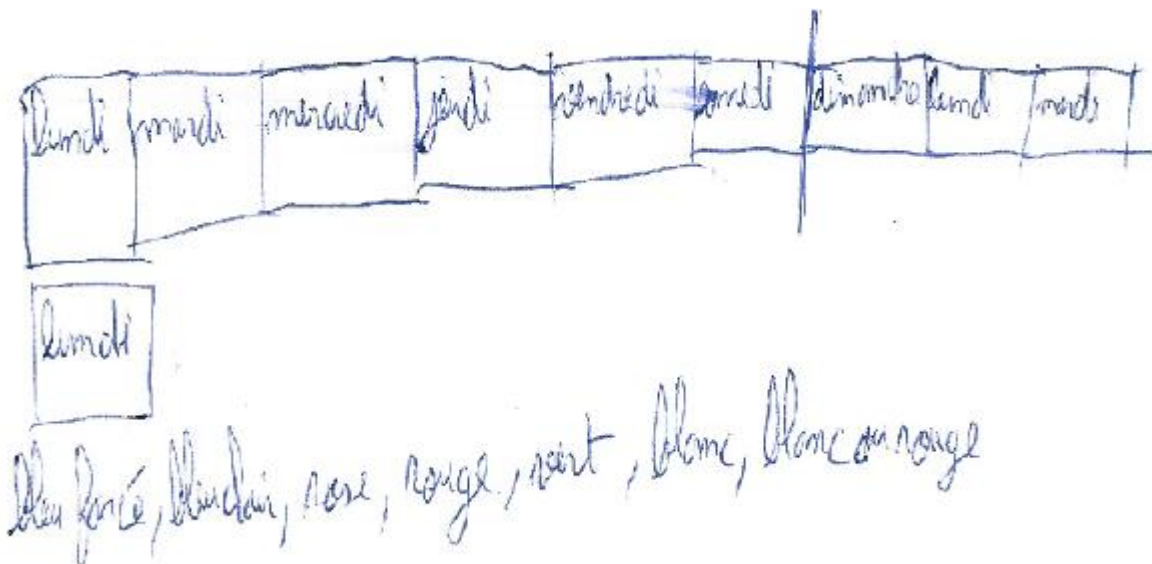 lundi mardi mercredi jeudi vendredi samedi dimanche lundi mardi
lundi
bleu foncé, bleu clair, rose, rouge, vert, blanc, blanc ou rouge